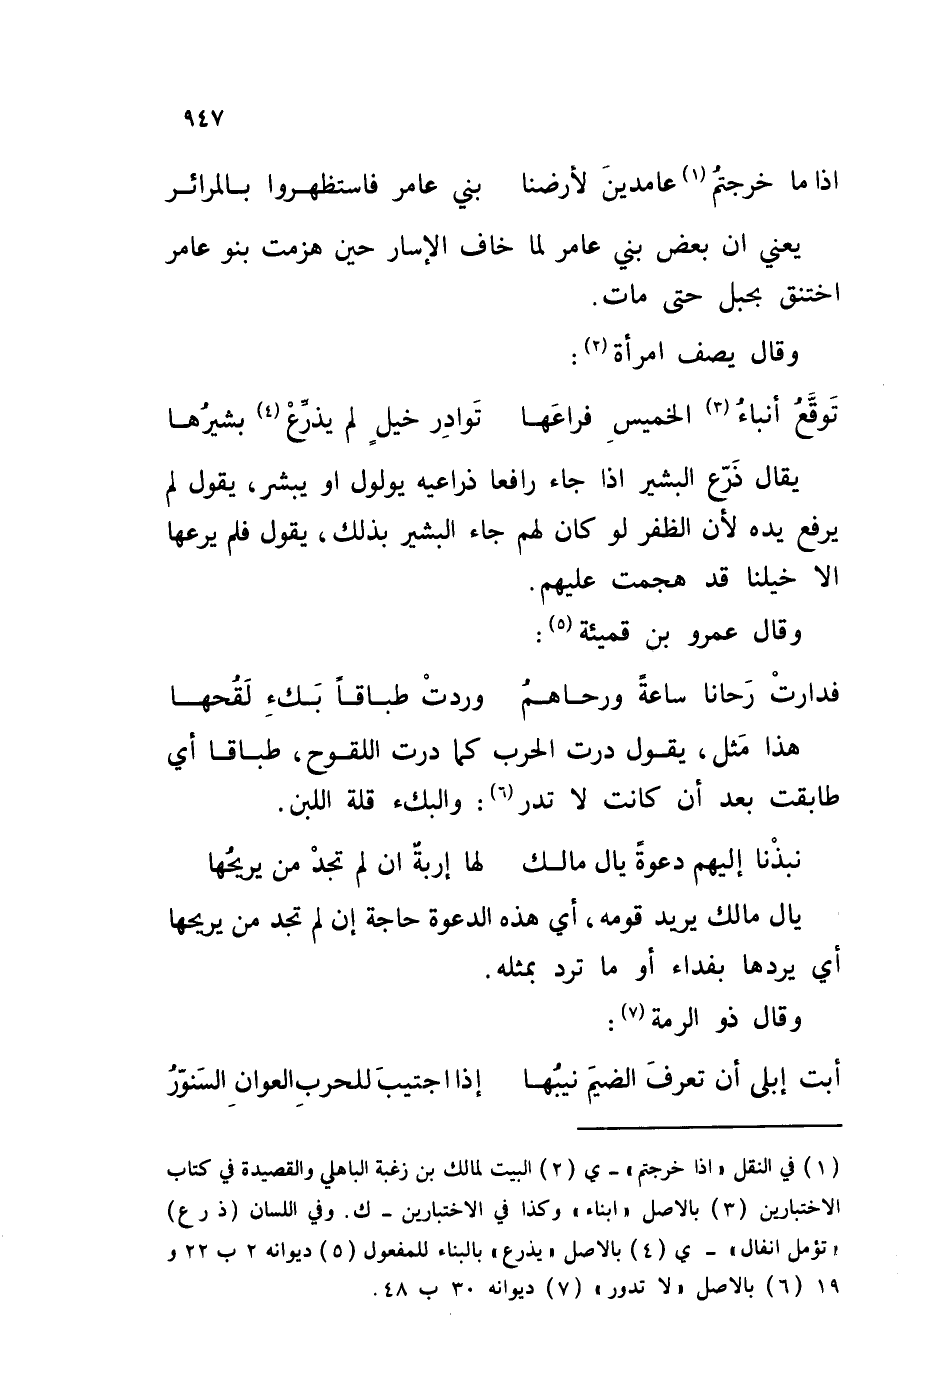 ٩٤٧
اذا ما خرجتمُ (١) عامدينَ لأرضنا بني عامر فاستظهـروا بـالمرائـر
يعني ان بعض بني عامر لما خاف الإسار حين هزمت بنو عامر
اختنق بحبل حتى مات.
وقال يصف امرأة (٢) :
تَوقَّعُ أنباءُ (٣) الخميسِ فراعَهـا تَوادِر خيلٍ لم يذرِّعْ (٤) بشيرُهـا
يقال ذَرّع البشير اذا جاء رافعا ذراعيه يولول او يبشر، يقول لم
يرفع يده لأن الظفر لو كان لهم جاء البشير بذلك، يقول فلم يرعها
الا خيلنا قد هجمت عليهم.
وقال عمرو بن قميئة (٥) :
فدارتْ رَحانا ساعةً ورحـاهـمُ وردتْ طبـاقـاً بَـكءِ لَقُحهـا
هذا مَثل، يقـول درت الحرب كما درت اللقـوح، طبـاقـا أي
طابقت بعد أن كانت لا تدر (٦) : والبكء قلة اللبن.
نبذْنا إليهم دعوةً يال مالـك لها إربةٌ ان لم تجدْ من يريحُها
يال مالك يريد قومه، أي هذه الدعوة حاجة إن لم تجد من يريحها
أي يردها بفداء أو ما ترد بمثله.
وقال ذو الرمة (٧) :
أبت إبلي أن تعرفَ الضيمَ نيبُهـا إذا اجتيبَ للحربِ العوانِ السَنوّرُ
(١) في النقل «اذا خرجتم» ـ ي (٢) البيت لمالك بن زغبة الباهلي والقصيدة في كتاب
الاختبارين (٣) بالاصل «ابناء» وكذا في الاختبارين ـ ك. وفي اللسان (ذ ر ع)
«تؤمل انفال» ـ ي (٤) بالاصل «يذرع» بالبناء للمفعول (٥) ديوانه ٢ ب ٢٢ و
١٩ (٦) بالاصل «لا تدور» (٧) ديوانه ٣٠ ب ٤٨.